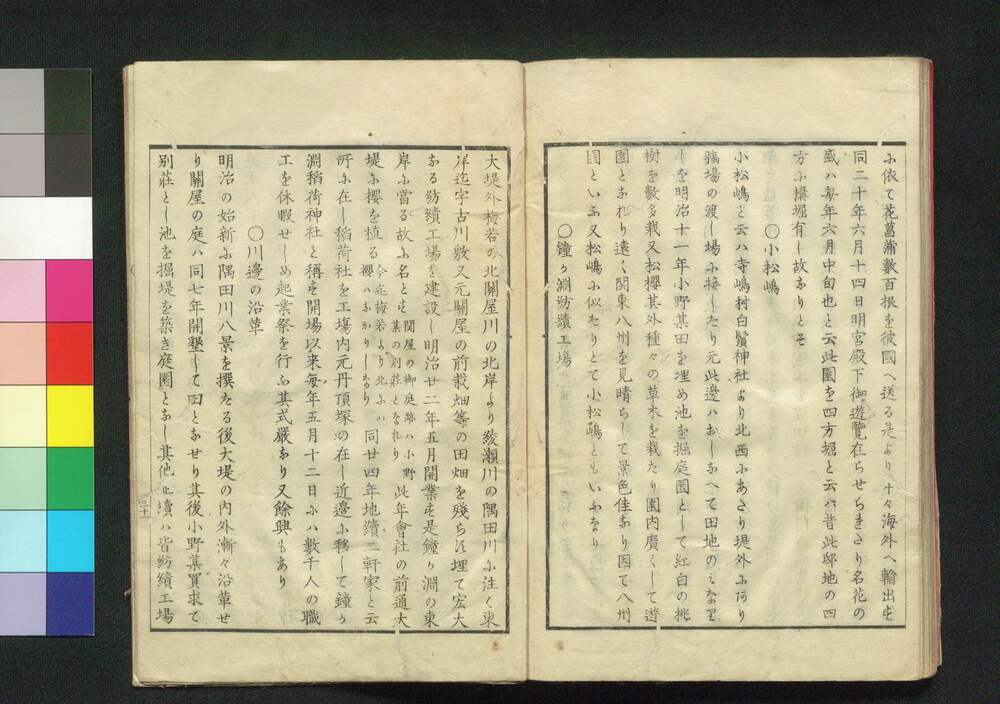 ふ依て花菖蒲數百根を彼國へ送る是より十々海外へ輸出す
同二十年六月十四日明宮殿下御遊覧在らせらきさり名花の
盛ハ毎年六月中旬也と云此園を四方堀と云ハ昔此邸地の四
方ふ構堀有し故なりとそ
〇小松嶋
小松嶋と云ハ寺嶋村白鬚神社より北西ふあさり堤外ふ有り
鵜場の渡し場ふ接したり元此邊ハおしなへて田地のミなり
しを明治十一年小野某田を埋め池を掘庭園として紅白の桃
樹を數多栽又松櫻其外種々の草木を栽たり園内廣くして遊
園となれり遠く関東八州を見晴らして景色佳なり因て八州
園といふ又松嶋ふ似たりとて小松嶋ともいふなり
〇鐘ヶ淵紡績工場
大堤外梅若の北關屋川の北岸より綾瀬川の隅田川ふ注く東
岸迄字古川敷又元關屋の前栽畑等の田畑を殘らす埋て宏大
なる紡績工場を建設し明治廿二年五月開業す是鐘ヶ淵の東
岸ふ當る故ふ名とす 関屋の御庭跡ハ小野某の別荘となれり 此年會社の前通大
堤ふ櫻を植る 今迄梅若より北ふハ櫻ハなかりしなり 同廿四年地續二軒家と云
所ふ在し稲荷社を工塲内元丹頂塚の在し近邊ふ移して鐘ヶ
淵稻荷神社と稱す開場以来毎年五月十二日ふハ數千人の職
工を休暇せしめ起業祭を行ふ其式嚴なり又餘興もあり
〇川邊の沿革
明治の始新ふ隅田川八景を撰たる後大堤の内外漸々沿革せ
り關屋の庭ハ同七年開墾して田となせり其後小野某買求て
別莊とし池を掘堤を築き庭園となし其他地續ハ皆紡績工場
三十